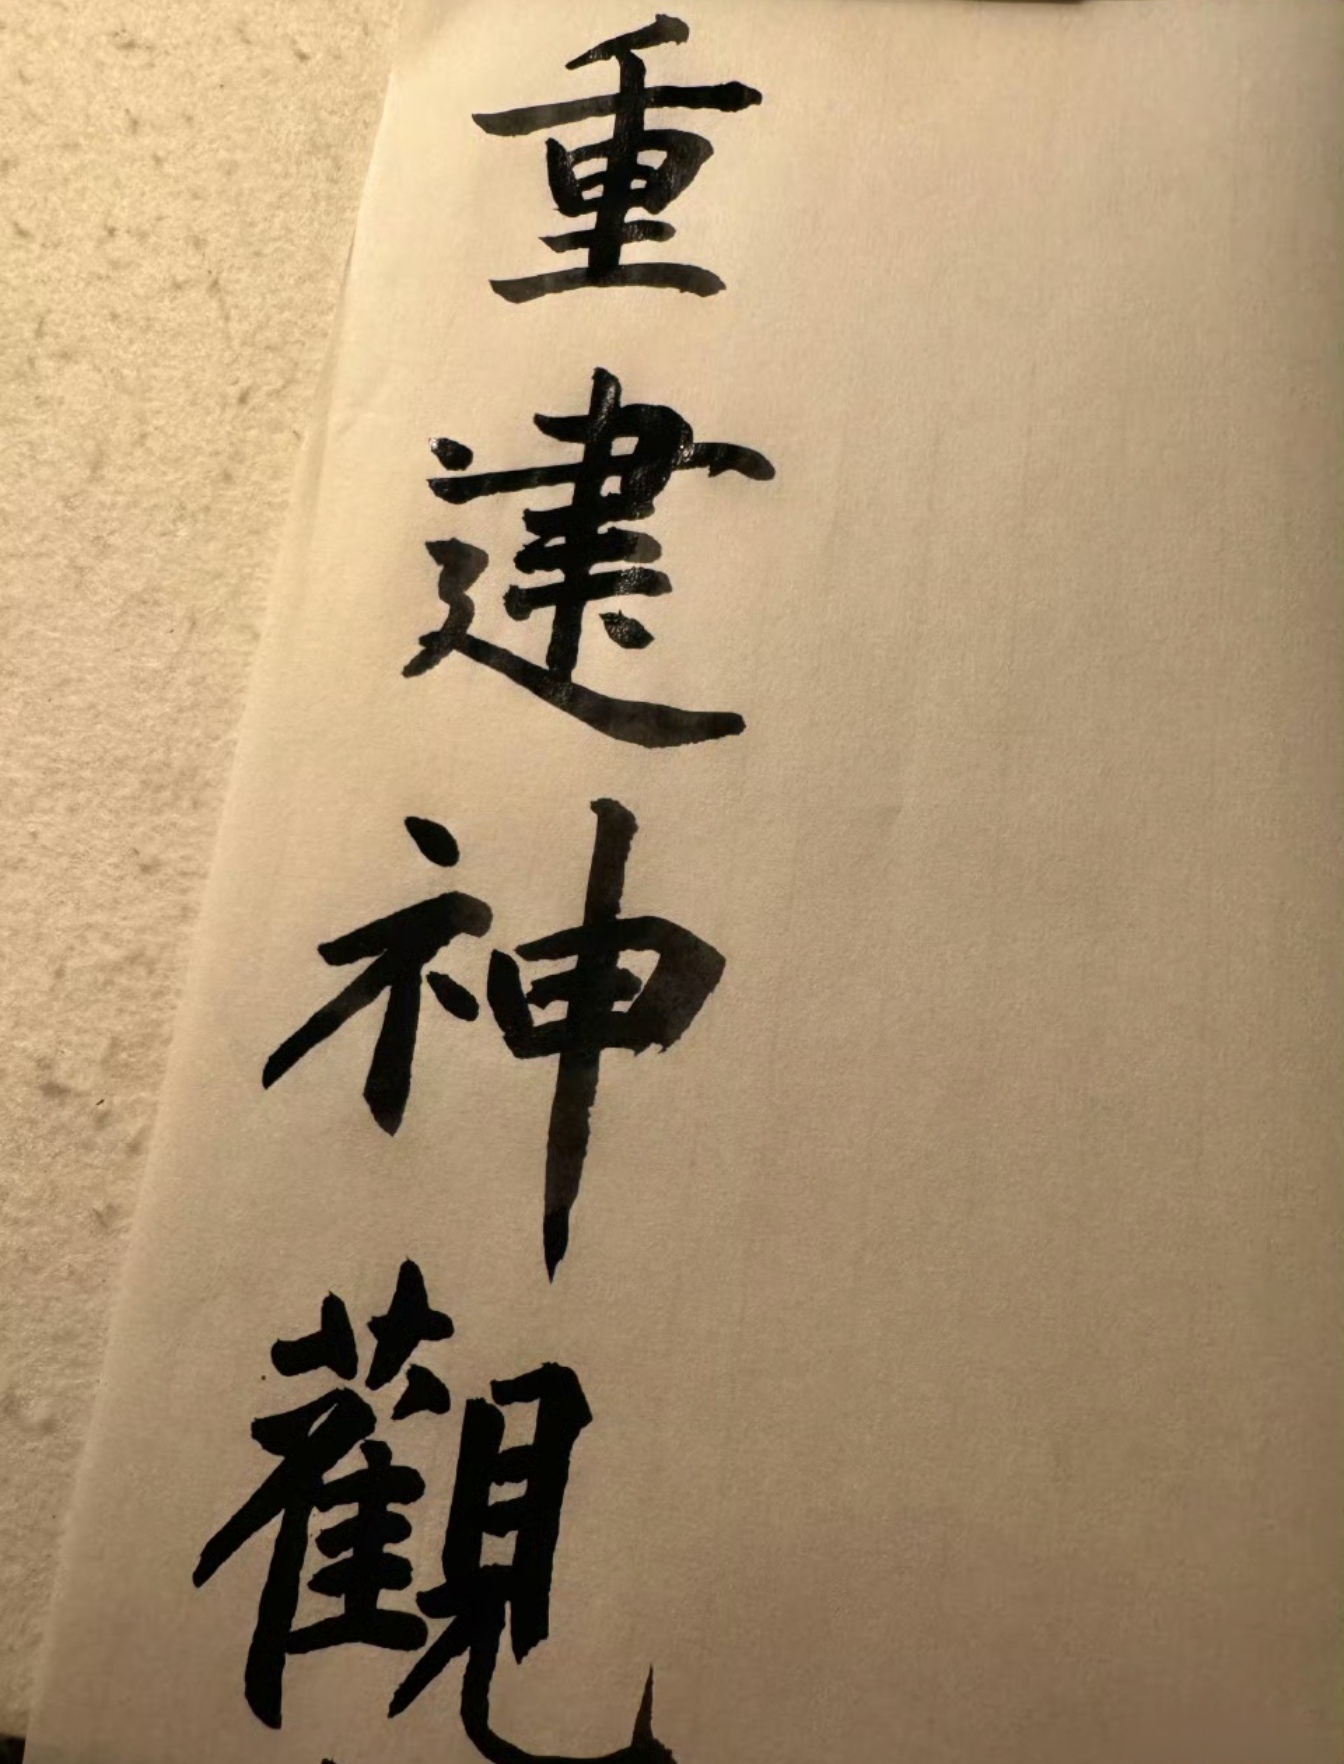 重建神觀